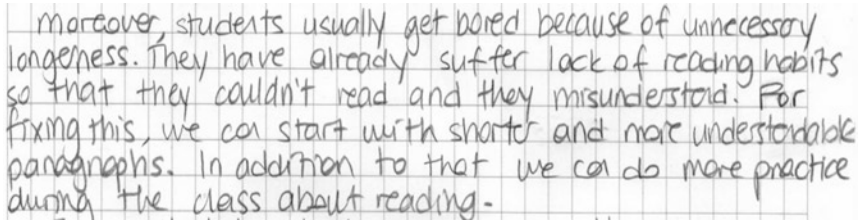 moreover, students usually get bored because of unnecessory
longeness. They have already suffer lack of reading habits
so that they couldn't read and they misunderstand. For
fixing this, we can start with shorter and more understandable
paragraphs. In addition to that we can do more practice
during the class about reading.